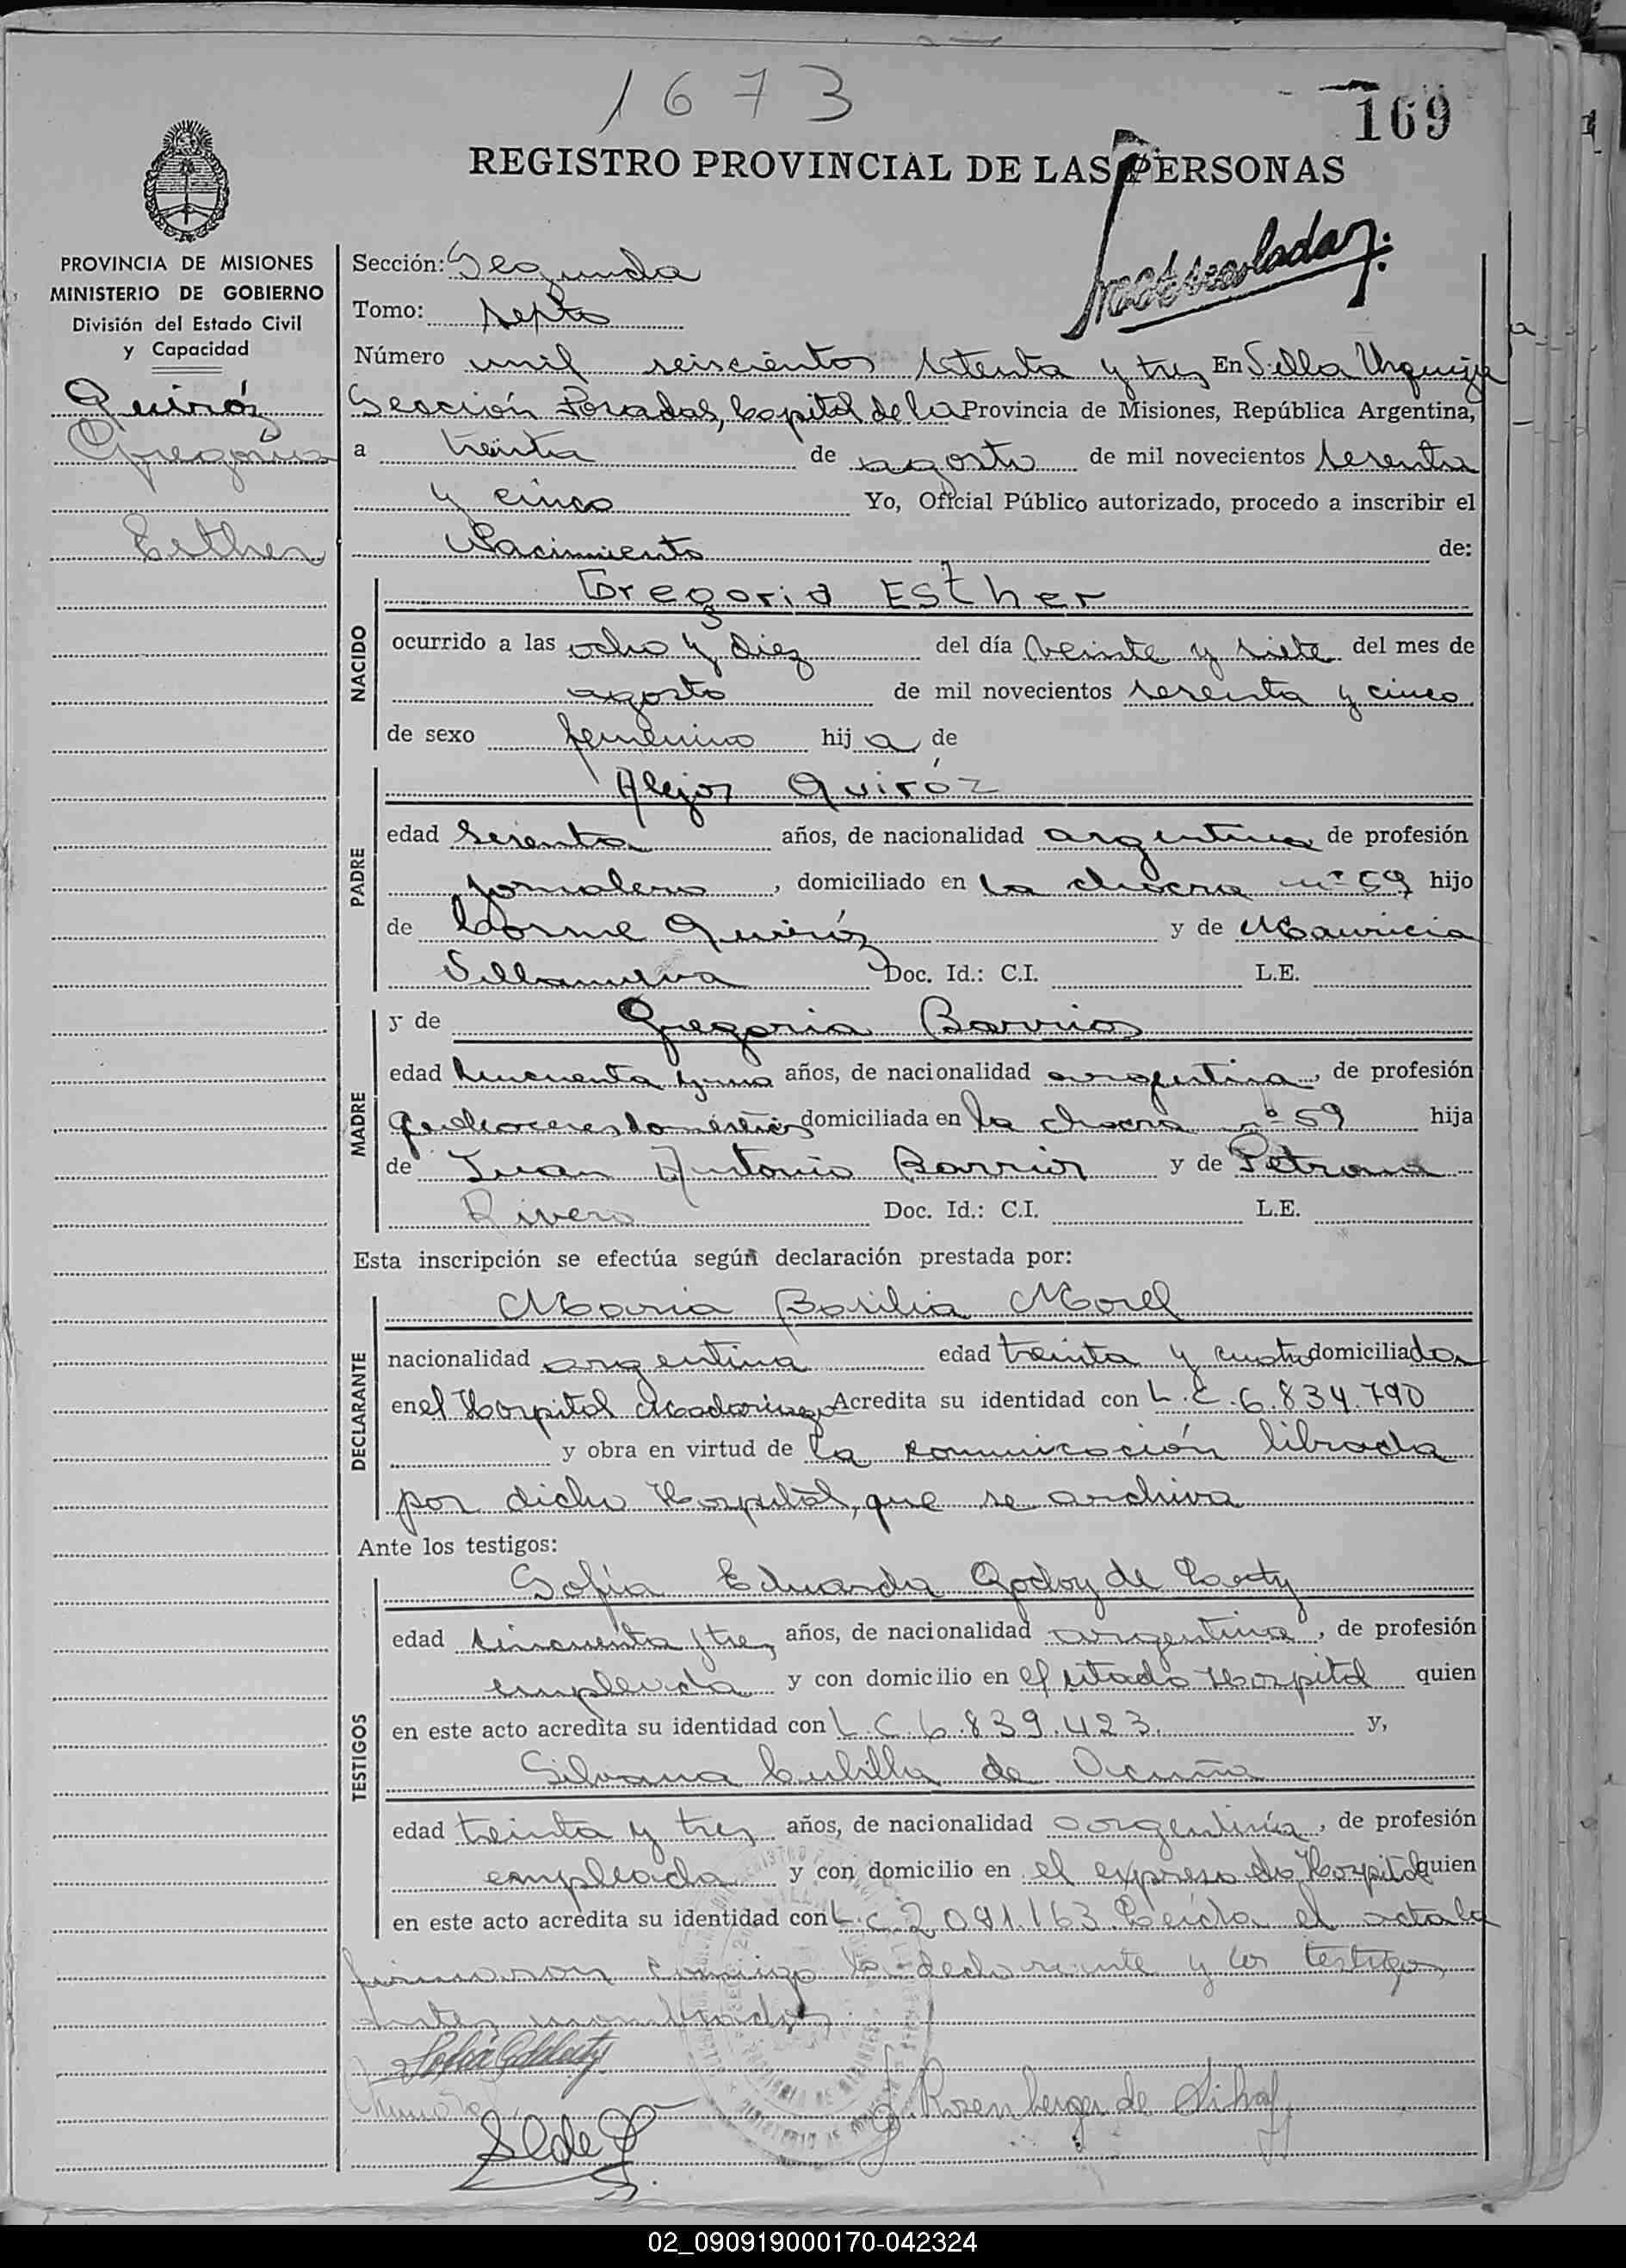 1673
169
REGISTRO PROVINCIAL DE LAS PERSONAS
PROVINCIA DE MISIONES
MINISTERIO DE GOBIERNO
División del Estado Civil
y Capacidad
Quiróz
Gregoria
Esther
Sección: Segunda
Tomo: septo
Número mil seiscientos setenta y tres En Villa Urquiza
Sección Posadas, Capital de la Provincia de Misiones, República Argentina,
a treinta de agosto de mil novecientos sesenta
y cinco Yo, Oficial Público autorizado, procedo a inscribir el
Nacimiento de:
NACIDO
Gregoria Esther
ocurrido a las ocho y diez del día veinte y siete del mes de
agosto de mil novecientos sesenta y cinco
de sexo femenino hija de
PADRE
Alejo Quiróz
edad sesenta años, de nacionalidad argentina de profesión
jornalero, domiciliado en la chacra nº 59 hijo
de Cosme Quiróz y de Mauricia
Villanueva Doc. Id.: C.I. L.E.
MADRE
y de Gregoria Barrios
edad cincuenta y uno años, de nacionalidad argentina, de profesión
quehaceres domésticos domiciliada en la chacra nº 59 hija
de Juan Antonio Barrios y de Petrona
Rivero Doc. Id.: C.I. L.E.
Esta inscripción se efectúa según declaración prestada por:
DECLARANTE
Maria Basilia Morel
nacionalidad argentina edad treinta y cuatro domiciliada
en el Hospital Madariaga Acredita su identidad con L.C. 6.834.790
y obra en virtud de la comunicación librada
por dicho Hospital, que se archiva
Ante los testigos:
TESTIGOS
Sofía Eduarda Godoy de
edad cincuenta y tres años, de nacionalidad argentina, de profesión
empleada y con domicilio en el citado Hospital quien
en este acto acredita su identidad con L.C. 6.839.423. y,
Silvana Cubilla de Vicuña
edad treinta y tres años, de nacionalidad argentina, de profesión
empleada y con domicilio en el expresado Hospital quien
en este acto acredita su identidad con L.C. 2.091.163 Leída el acta la
firmaron conmigo la declarante y los testigos
antes nombrados.
Rosenberger de
02_090919000170-042324